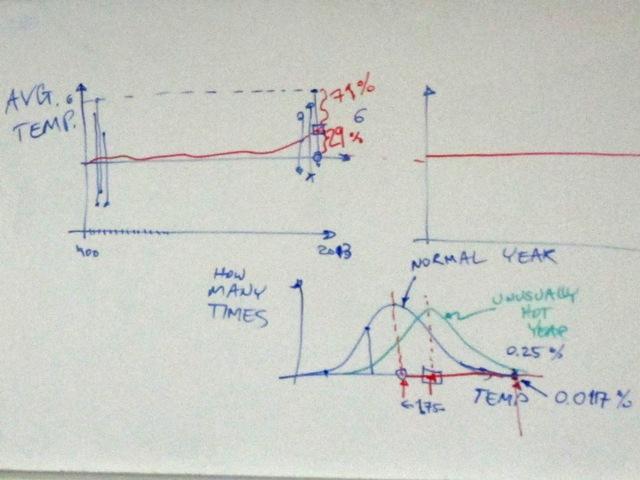 AVG.
TEMP.
6
71%
6
29%
400
2013
HOW
MANY
TIMES
NORMAL YEAR
UNUSUALLY
HOT
YEAR
0.25 %
TEMP
0.0117 %
1.75